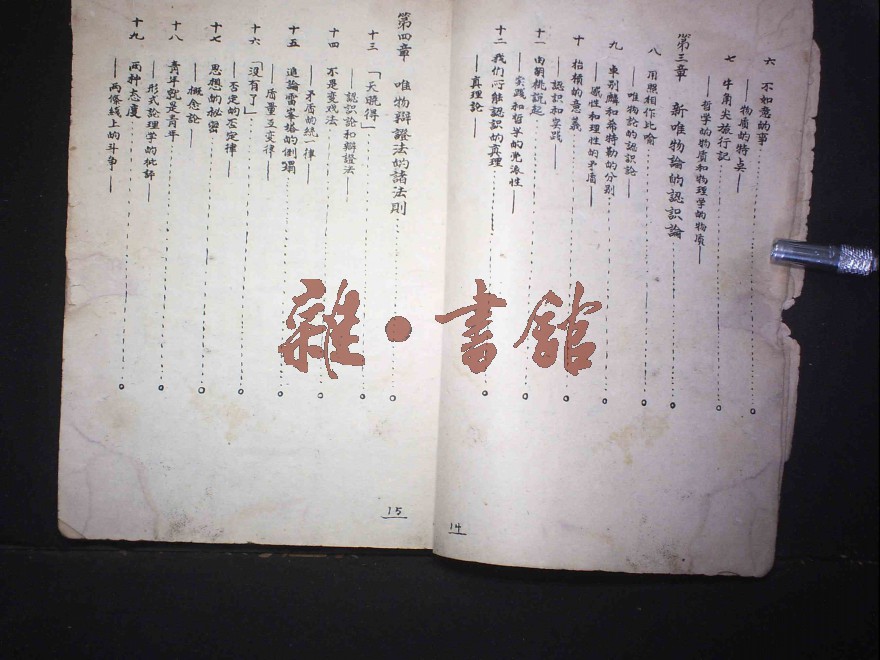 六 不如意的事
——物质的特点——
七 牛角尖旅行记
——哲学的物质和物理学的物质——
第三章 新唯物論的認识論
八 用照相作比喻
——唯物論的認识論——
九 卓别麟和希特勒的分别
——感性和理性的矛盾——
十 抬槓的意義
——認识和实践——
十一 由胡桃説起
——实践和哲学的党派性——
十二 我们所能認识的真理
——真理論——
14
第四章 唯物辯證法的諸法則
十三 「天曉得」
——認識論和辯證法——
十四 不是变戏法
——矛盾的統一律——
十五 追論雷峯塔的倒塌
——质量互变律——
十六 「没有了」
——否定的否定律——
十七 思想的秘密
——概念論——
十八 青年就是青年
——形式論理学的批評——
十九 两种态度
——两條綫上的斗争——
15
雜·書館